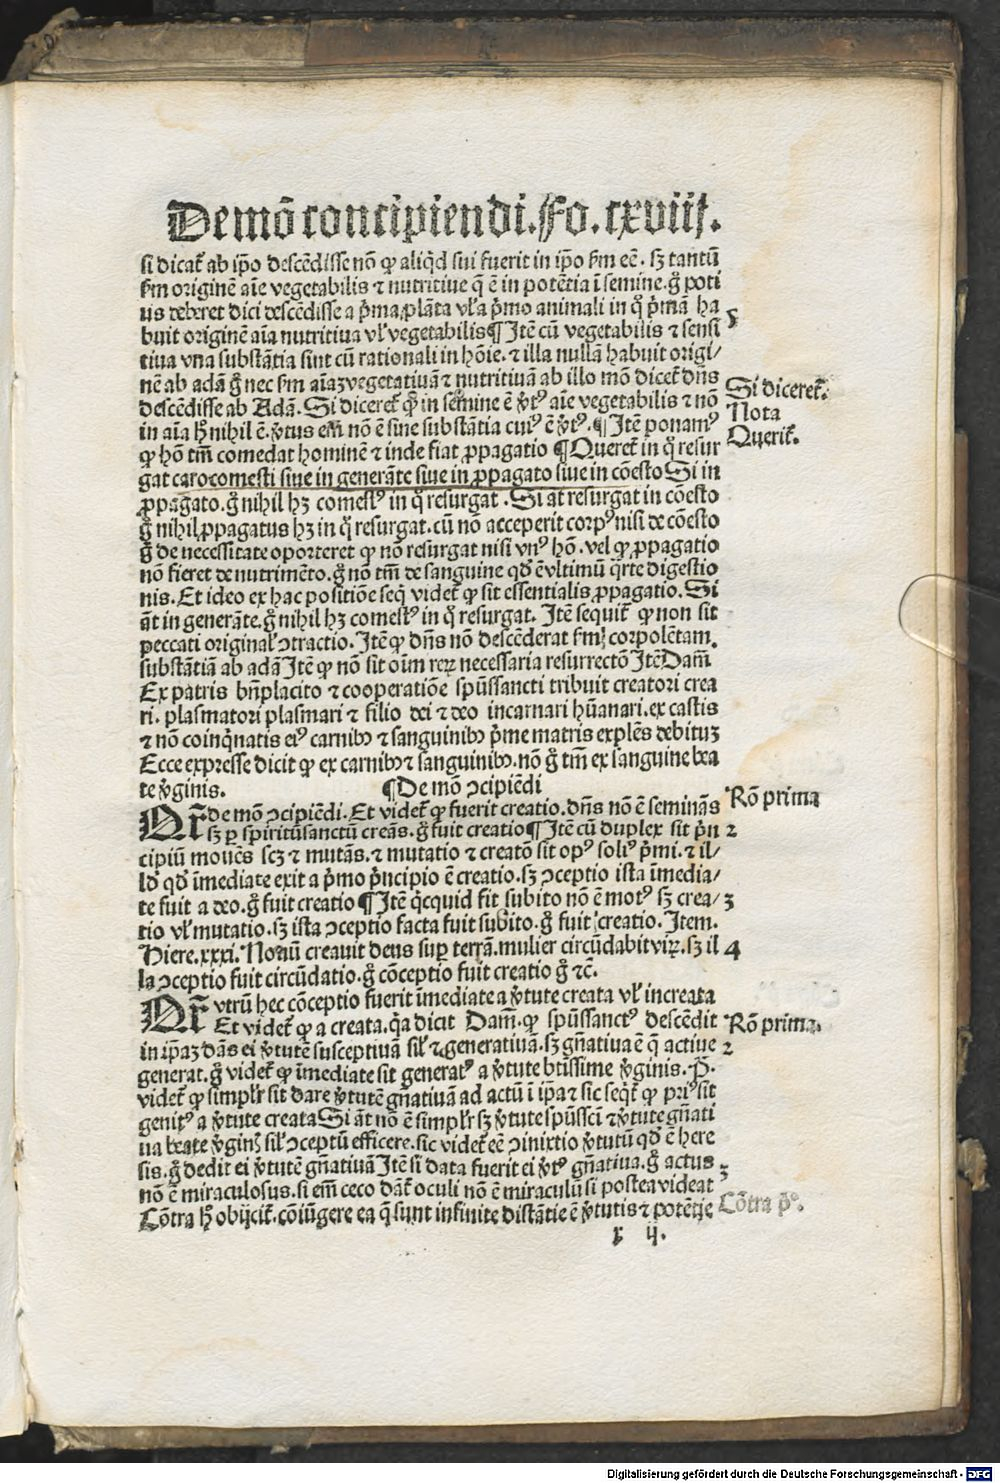 De mō concipiendi. Fo. cxviij.
si dicat̄ ab ip̄o descēdisse nō ꝙ aliqd̓ sui fuerit in ip̄o ẜm eē. sꝫ tantū
ẜm originē aīe vegetabilis ⁊ nutritiue q̄ ē in potētia ī semine. gͦ poti
us deberet dici descēdisse a p̄ma plāta vl̓ a p̄mo animali in qͦ p̄mā ha
buit originē aīa nutritiua vl̓ vegetabilis ¶ Itē cū vegetabilis ⁊ sensi
5
tiua vna substātia sint cū rationali in hōie. ⁊ illa nullā habuit origi/
nē ab adā gͦ nec ẜm aīaꝫ vegetatiuā ⁊ nutritiuā ab illo mō dicet̄ dn̄s
descēdisse ab Adā. Si diceret̄ ꝙ in semine ē v̓tꝰ aīe vegetabilis ⁊ nō
Si diceret̄.
in aīa hͦ nihil ē. v̓tus em̄ nō ē sine substātia cuiꝰ ē v̓tꝰ. ¶ Itē ponamꝰ
Nota
ꝙ hō tm̄ comedat hominē ⁊ inde fiat ꝓpagatio ¶ Queret̄ in qͦ resur
Querit̄.
gat caro comesti siue in generāte siue in ꝓpagato siue in cōesto Si in
ꝓpagato. gͦ nihil hꝫ comestꝰ in qͦ resurgat. Si aūt resurgat in cōesto
gͦ nihil ꝓpagatus hꝫ in qͦ resurgat. cū nō acceperit corpꝰ nisi de cōesto
gͦ de necessitate oporteret ꝙ nō resurgat nisi vnꝰ hō. vel ꝙ ꝓpagatio
nō fieret de nutrimēto. gͦ nō tm̄ de sanguine qd̓ ē vltimū q̓rte digestio
nis. Et ideo ex hac positiōe seq̄ videt̄ ꝙ sit essentialis ꝓpagatio. Si
āt in generāte. gͦ nihil hꝫ comestꝰ in qͦ resurgat. Itē sequit̄ ꝙ non sit
peccati original̓ ↄtractio. Itē ꝙ dn̄s nō descēderat ẜm corpolētam.
substātiā ab adā Itē ꝙ nō sit oīm reꝝ necessaria resurrectō Itē Dam̄
Ex patris bn̄placito ⁊ cooperatiōe spūssancti tribuit creatori crea
ri. plasmatori plasmari ⁊ filio dei ⁊ deo incarnari hūanari. ex castis
⁊ nō coinq̓natis eiꝰ carnibꝰ ⁊ sanguinibꝰ p̄me matris explēs debituꝫ
Ecce expresse dicit ꝙ ex carnibꝰ ⁊ sanguinibꝰ. nō gͦ tm̄ ex sanguine bea
te v̓ginis. ¶ De mō ↄcipiēdi
Rō prima
Qr̄ de mō ↄcipiēdi. Et videt̄ ꝙ fuerit creatio. dn̄s nō ē seminās
sꝫ ꝑ spiritūsanctū creās. gͦ fuit creatio ¶ Itē cū duplex sit p̄n
2
cipiū mouēs scꝫ ⁊ mutās. ⁊ mutatio ⁊ creatō sit opꝰ soliꝰ p̄mi. ⁊ il/
lḋ qd̓ īmediate exit a p̄mo p̄ncipio ē creatio. sꝫ ↄceptio ista īmedia/
te fuit a deo. gͦ fuit creatio ¶ Itē q̓cquid fit subito nō ē motꝰ sꝫ crea/
3
tio vl̓ mutatio. sꝫ ista ↄceptio facta fuit subito. gͦ fuit creatio. Item.
Hiere. xxxi. Nouū creauit deus suꝑ terrā. mulier circūdabit viꝝ. sꝫ il
4
la ↄceptio fuit circūdatio. gͦ cōceptio fuit creatio gͦ ⁊c̄.
Qr̄ vtrū hec cōceptio fuerit īmediate a v̓tute creata vl̓ increata
Et videt̄ ꝙ a creata. q̓a dicit Dam̄. ꝙ spūssanctꝰ descēdit
Rō prima.
in ip̄aꝫ dās ei v̓tutē susceptiuā sil̓ ⁊ generatiuā. sꝫ gn̄atiua ē q̄ actiue
2
generat. gͦ videt̄ ꝙ īmediate sit generatꝰ a v̓tute btīssime v̓ginis. P.
videt̄ ꝙ simplr̓ sit dare v̓tutē gn̄atiuā ad actū ī ip̄a ⁊ sic seqt̄ ꝙ priꝰ sit
genitꝰ a v̓tute creata Si āt nō ē simplr̓ sꝫ v̓tute spūssc̄i ⁊ v̓tute gn̄ati
ua beate v̓gīs sil̓ ↄceptū efficere. sic videt̄ eē ↄmixtio v̓tutū qd̓ ē here
sis. gͦ dedit ei v̓tutē gn̄atiuā Itē si data fuerit ei v̓tꝰ gn̄atiua. gͦ actus
3
nō ē miraculosus. si em̄ ceco dāt̄ oculi nō ē miraculū si postea videat
Cōtra hͦ obijcit̄. cōiūgere ea q̄ sunt infinite distātie ē v̓tutis ⁊ potētie
Cōtra p̄ᵒ.
r ij.
Digitalisierung gefördert durch die Deutsche Forschungsgemeinschaft - DFG